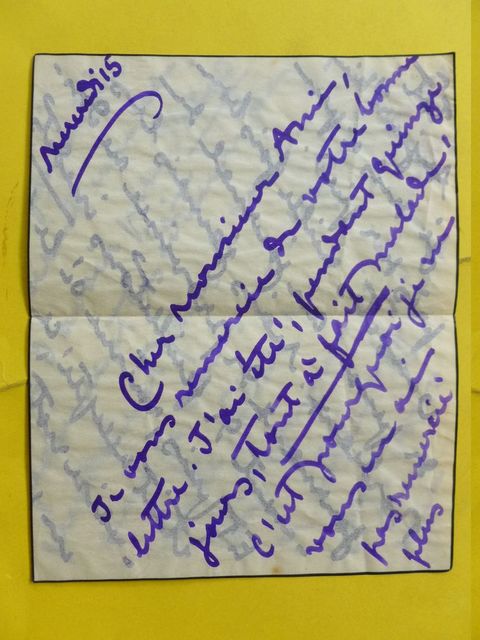 mercredi 15
Cher monsieur Ami,
Je vous remercie de votre bonne
lettre. J'ai été, pendant quinze
jours, tout à fait malade,
C'est pourquoi je ne
vous en ai
pas remercié
plus